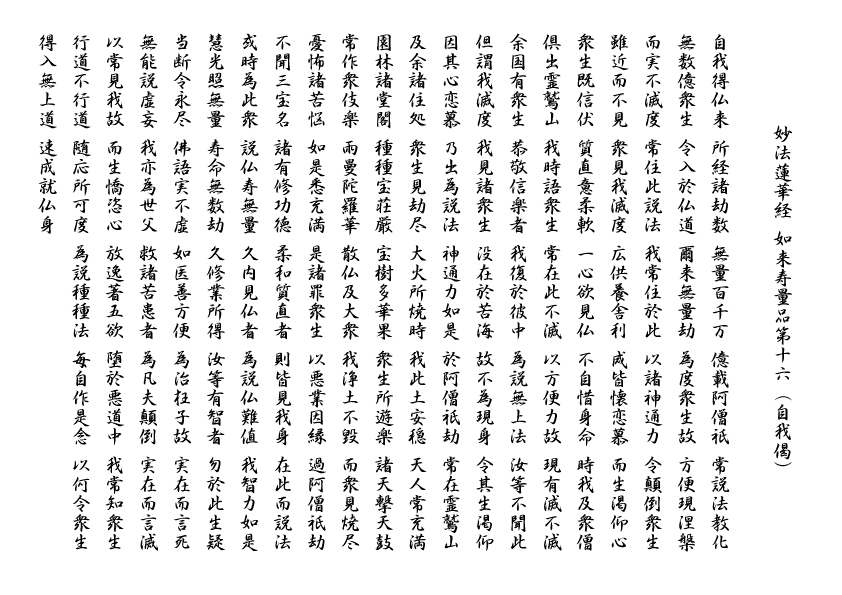 妙法蓮華経 如来寿量品第十六(自我偈)
自我得仏来 所経諸劫数 無量百千万 億載阿僧祇 常説法教化
無数億衆生 令入於仏道 爾来無量劫 為度衆生故 方便現涅槃
而実不滅度 常住此説法 我常住於此 以諸神通力 令顛倒衆生
雖近而不見 衆見我滅度 広供養舎利 咸皆懐恋慕 而生渇仰心
衆生既信伏 質直意柔軟 一心欲見仏 不自惜身命 時我及衆僧
倶出霊鷲山 我時語衆生 常在此不滅 以方便力故 現有滅不滅
余国有衆生 恭敬信楽者 我復於彼中 為説無上法 汝等不聞此
但謂我滅度 我見諸衆生 没在於苦海 故不為現身 令其生渇仰
因其心恋慕 乃出為説法 神通力如是 於阿僧祇劫 常在霊鷲山
及余諸住処 衆生見劫尽 大火所焼時 我此土安穏 天人常充満
園林諸堂閣 種種宝荘厳 宝樹多華果 衆生所遊楽 諸天撃天鼓
常作衆伎楽 雨曼陀羅華 散仏及大衆 我浄土不毀 而衆見焼尽
憂怖諸苦悩 如是悉充満 是諸罪衆生 以悪業因縁 過阿僧祇劫
不聞三宝名 諸有修功徳 柔和質直者 則皆見我身 在此而説法
或時為此衆 説仏寿無量 久乃見仏者 為説仏難値 我智力如是
慧光照無量 寿命無数劫 久修業所得 汝等有智者 勿於此生疑
当断令永尽 佛語実不虚 如医善方便 為治狂子故 実在而言死
無能説虚妄 我亦為世父 救諸苦患者 為凡夫顛倒 実在而言滅
以常見我故 而生憍恣心 放逸著五欲 堕於悪道中 我常知衆生
行道不行道 随応所可度 為説種種法 毎自作是念 以何令衆生
得入無上道 速成就仏身